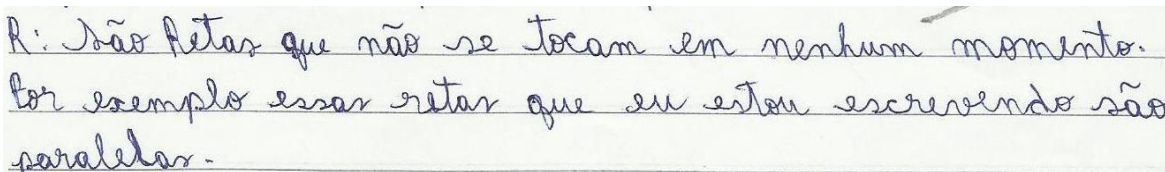 R: São Retas que não se tocam em nenhum momento.
Por exemplo essas retas que eu estou escrevendo são
paralelas.